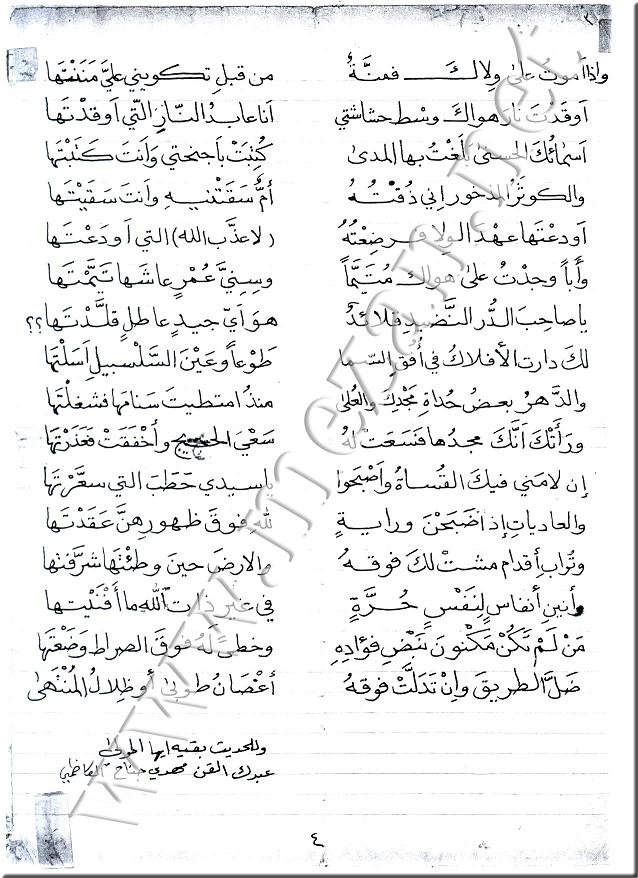 وإذا أموتُ على ولاك فمنةٌ من قبلِ تكويني عليَّ مَنَنْتَها
أوقدْتَ نار هواك وسْط حشاشتي أنا عابد النّارِ التّي أوقدْتَها
أسمائُكَ الحسنى بلَغْتُ بها المدى كُتِبَتْ بأجنحتي وأنتَ كتَبْتَها
والكوثَرُ المذخور إني ذُقْتُهُ أُمٌّ سَقَتْنيهِ وأنتَ سَقَيْتَها
أودعْتَها عهْدَ الولا فرضِعْتُهُ (لا عذّب الله) التي أودَعْتَها
وأباً وجدْتُ على هواك مُتَيَّماً وسِنِيَّ عُمْرٍ عاشها تيَّمْتَها
يا صاحبَ الدُّر النَّضيدِ قلائدُ هوَ أيّ جيدٍ عاطلٍ قلَّدْتَها؟؟
لكَ دارت الأفلاكُ في أُفقِ السّما طَوْعاً وعَيْنَ السَّلْسبيلِ أَسَلْتَها
والدّهرُ بعضُ حُداةِ مَجْدِكَ والعُلى منذُ امتطيتَ سنامها فشغلْتَها
ورأتْكَ أنّكَ مجدُها فسَعَتْ لهُ سَعْيَ الحجيج وأخْفَقَتْ فعَذَرْتَها
إن لامَني فيكَ القُساةُ وأصْبحوا يا سيدي حَطَبَ التي سعَّرْتَها
والعادياتِ إذ اضْبَحْنَ ورايةٍ للهِ فوقَ ظهورِهنَّ عَقَدْتَها
وتُرابِ أقدامٍ مشتْ لكَ فوقهُ والارضِ حينَ وطِئْتَها شرَّفتها
وأنينِ أنفاسٍ لِنَفْسٍ حُرَّةٍ في غيرِ ذاتِ اللهِ ما أفْنَيْتها
مَنْ لَمْ تَكُنْ مكْنونَ نبْضِ فؤادِهِ وخطىً لهُ فوقَ الصراط وضَعْتَها
ضلَّ الطريقَ وإنْ تدَلَّتْ فوقهُ أغْصانُ طوبى أو ظِلالُ المُنْتَهى
وللحديث بقيه ايها المولى
عبدك القن مهدي جناح الكاظمي
٤
www.mezan.net